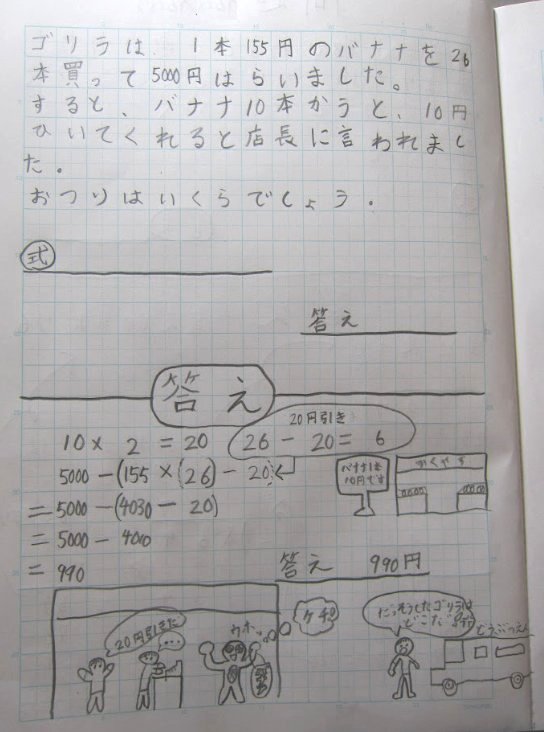 ゴリラは 1本155円のバナナを26
本買って5000円はらいました。
すると、バナナ10本かうと、10円
ひいてくれると店長に言われまし
た。
おつりはいくらでしょう。
式
答え
答え
20円引き
10×2=20 26-20=6
5000-(155×(26)-20)
=5000-(4030-20)
=5000-4010
=990
バナナ1本
10円です
かくやす
答え 990円
20円引きだ
...
ウホッ
ケチ
だっそうしたゴリラは
どこだ
どうぶつえん